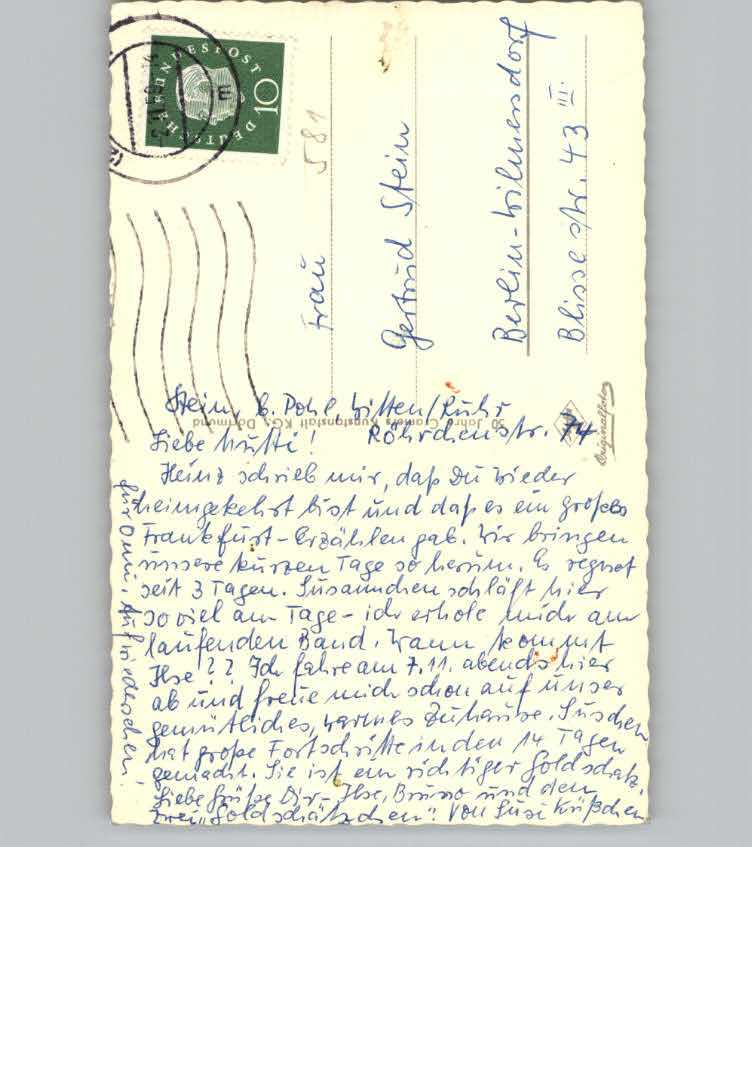 DEUTSCHE BUNDESPOST
10
581
Frau
Gertrud Stein
Berlin-Wilmersdorf
Blissestr. 43 III.
50 Jahre Cramers Kunstanstalt KG., Dortmund
Originalfoto
Stein, b. Pohl, Witten/Ruhr
Röhrchenstr. 74
Liebe Mutti!
Heinz schrieb mir, daß Du wieder
heimgekehrt bist und daß es ein großes
Frankfurt-Erzählen gab. Wir bringen
unsere kurzen Tage so herum. Es regnet
seit 3 Tagen. Susannchen schläft hier
so viel am Tage - ich erhole mich am
laufenden Band. Wann kommt
Ilse?? Ich fahre am 7.11. abends hier
ab und freue mich schon auf unser
gemütliches, warmes Zuhause. Suschen
hat große Fortschritte in den 14 Tagen
gemacht. Sie ist ein richtiger Goldschatz.
Liebe Grüße Dir - Ilse, Bruno und den
zwei "Goldschätzchen". Von Susi Küßchen
für Omi. Auf Wiedersehen!